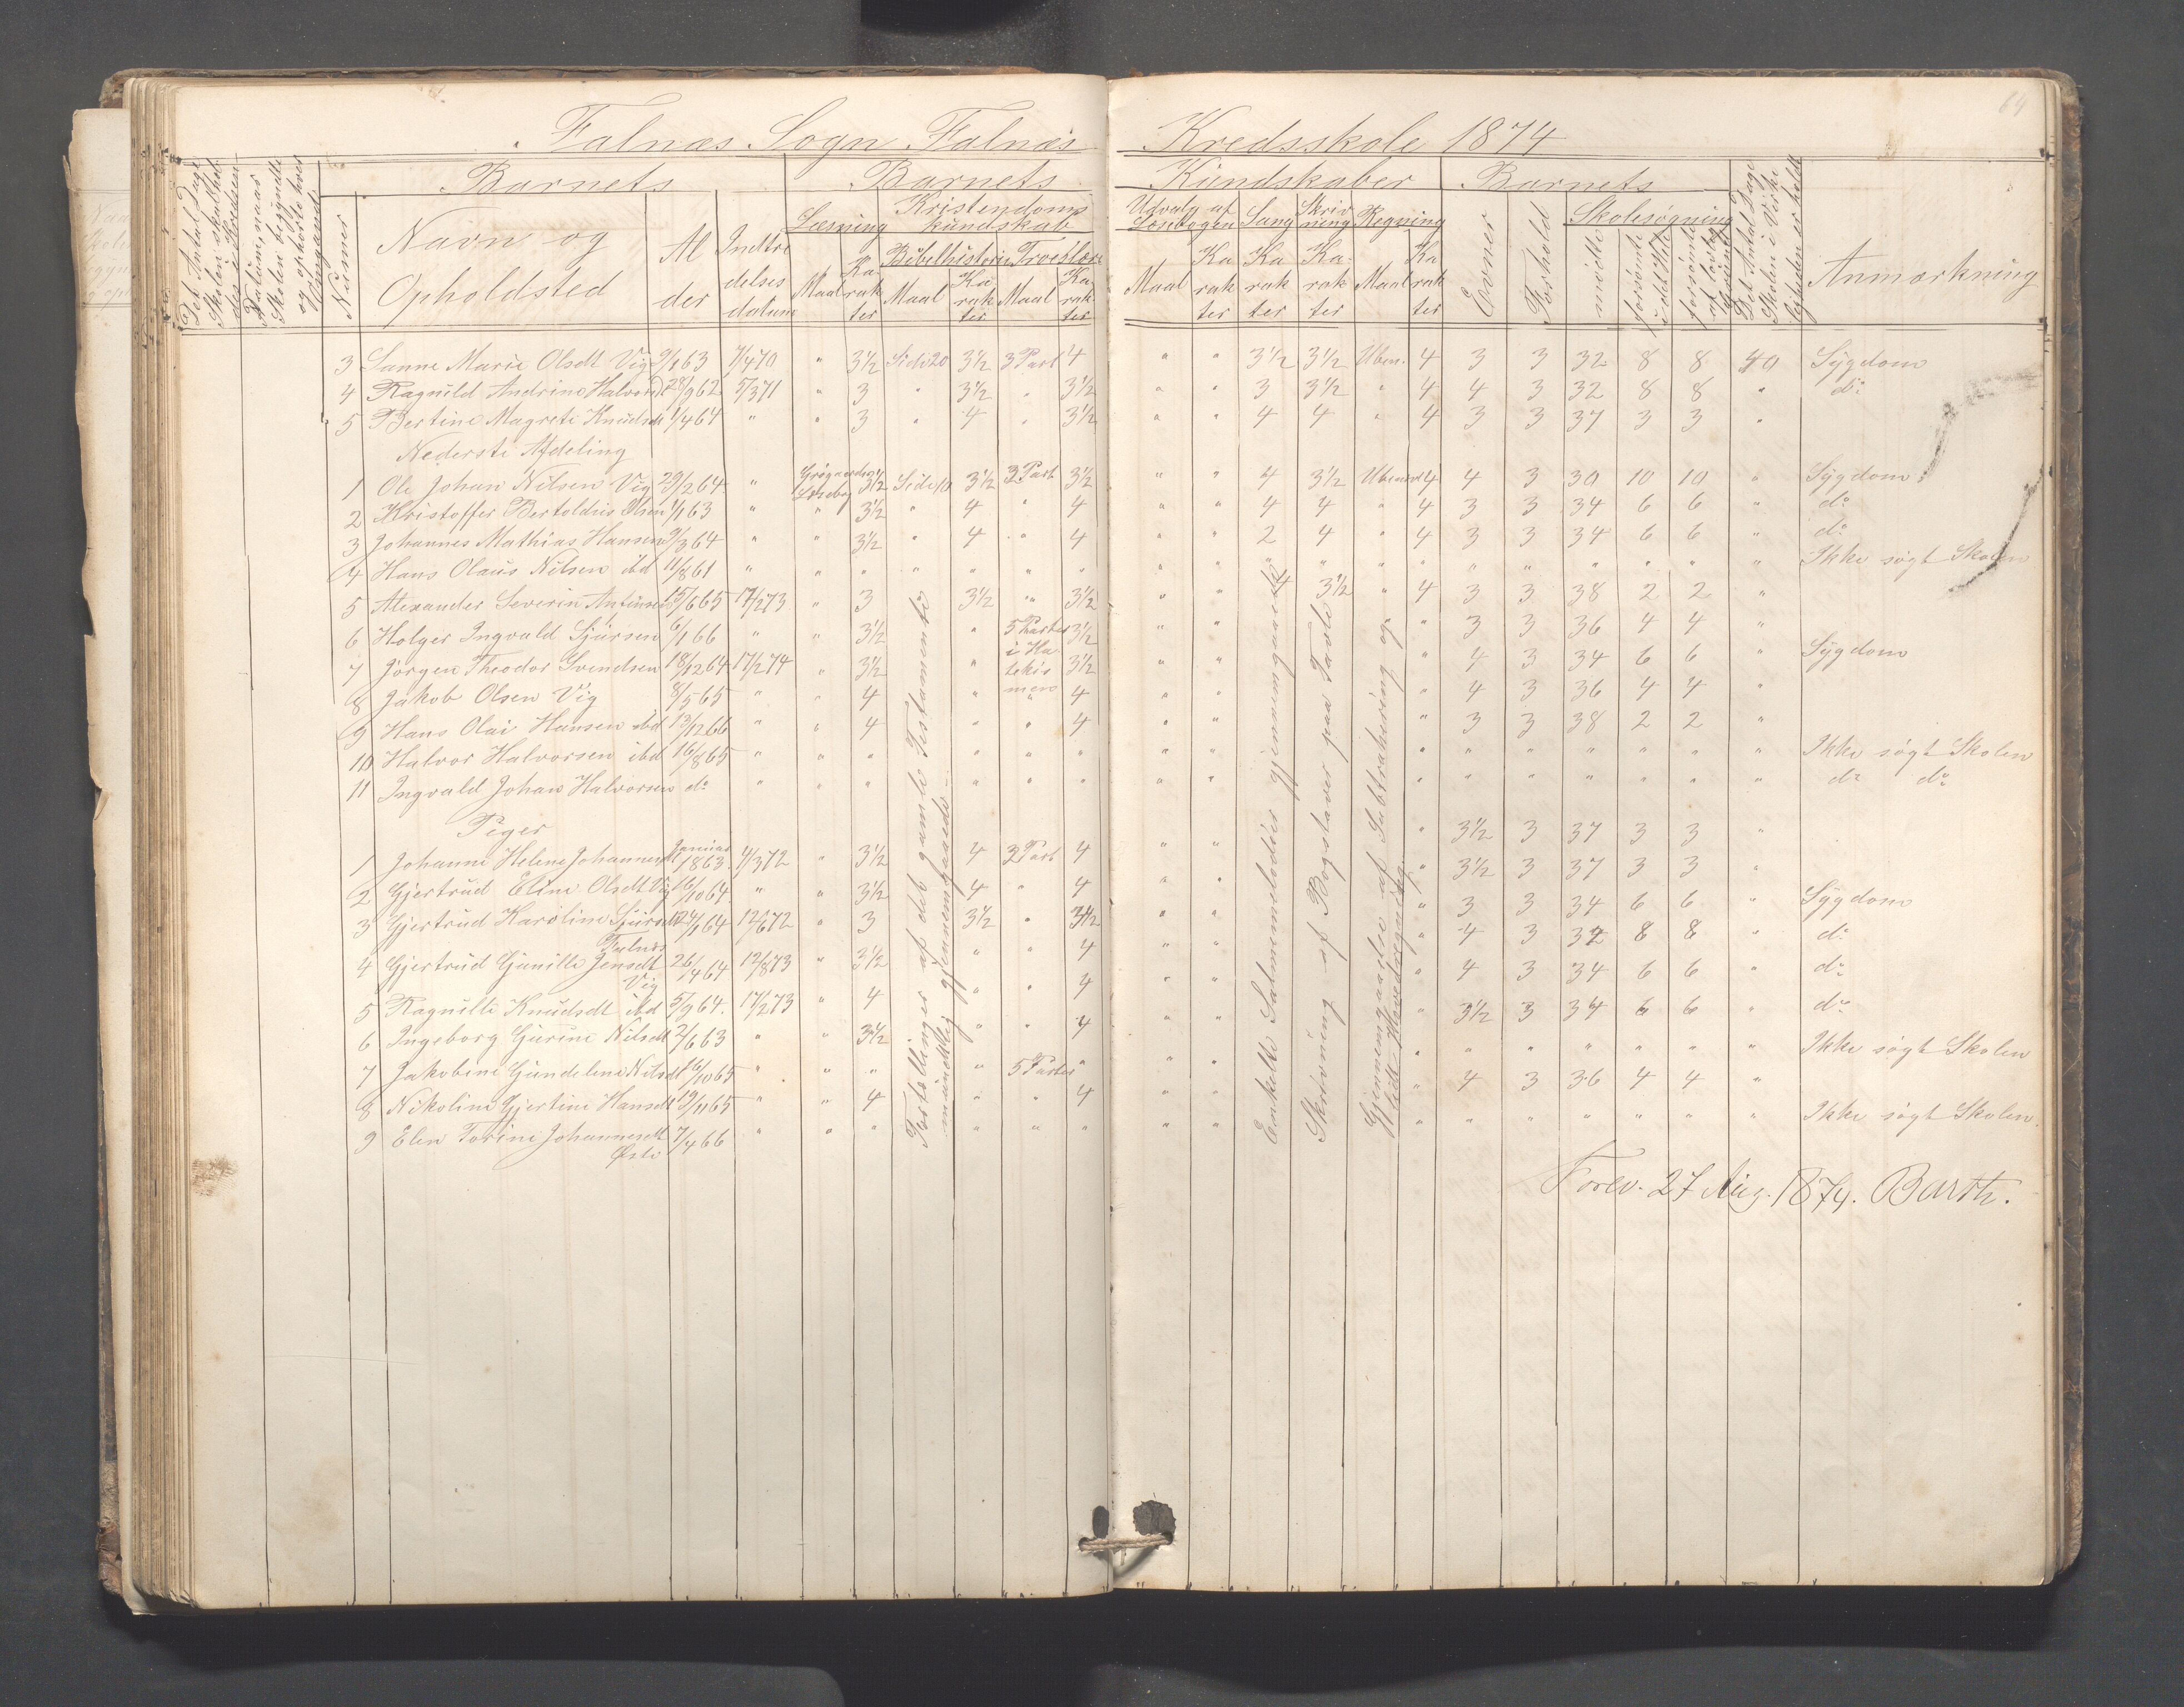 64
Falnæs Sogn Falnæs Kredsskole 1874
Det Antal Dage Skolen skal holdes i Kredsen
Datum, naar Skolen begyndte og ophörte hver Omgang
Numer
Barnets
Navn og Opholdsted
Alder
Indtrædelses datum
Barnets Kundskaber
Læsning
Maal
Karakter
Kristendoms kundskab
Bibelhistorie
Maal
Karakter
Troeslære
Maal
Karakter
Udvalg af Læsebogen
Maal
Karakter
Sang
Karakter
Skrivning
Karakter
Regning
Maal
Karakter
Barnets
Evner
Forhold
Skolesøgning
mödte
forsömte i det Hele
forsömte af lovlig Grund
Det Antal Dage Skolen i Virkeligheden er holdt
Anmærkning
3 Sanne Marie Olsdt Vig 9/1 63 7/4 70 " 3½ Side 20 3½ 3 Part 4 " " 3½ 3½ Uben. 4 3 3 32 8 8 40 Sygdom
4 Ragnild Andrine Halvorsdt 28/9 62 5/3 71 " 3 " 3½ " 3½ " " 3 3½ " 4 4 3 32 8 8 " do
5 Bertine Magrete Knudsdt 1/4 64 " " 3 " 4 " 3½ " " 4 4 " 4 3 3 37 3 3 "
Nederste Afdeling
1 Ole Johan Nilsen Vig 29/2 64 " Grögaards Læsebog 3½ Side 10 3½ 3 Part 3½ " " 4 3½ Ubenævnt 4 4 3 30 10 10 " Sygdom
2 Kristoffer Bertoldus Olsen 1/1 63 " " 3½ " 4 " 4 " " 4 4 " 4 3 3 34 6 6 " do
3 Johannes Mathias Hansen 9/3 64 " " 3½ " 4 " 4 " " 2 4 " 4 3 3 34 6 6 " do
4 Hans Olaus Nilsen ibd 11/8 61 " " " " " " " " " " " " " " " " " " " Ikke søgt Skolen
5 Alexander Severin Antonsen 15/6 65 17/2 73 " 3 3½ " 3½ " " 4 3½ " 4 3 3 38 2 2 "
6 Holger Ingvald Sjursen 6/1 66 " " 3½ " 5 Parter i Katekismen 3½ " " " 3 3 36 4 4 "
7 Jörgen Theodor Svendsen 18/12 64 17/2 74 " 3½ " 3½ " " " 4 3 34 6 6 " Sygdom
8 Jakob Olsen Vig 8/5 65 " " 4 " " 4 " " " 4 3 36 4 4 "
9 Hans Olai Hansen ibd 13/12 66 " " 4 " " 4 " " " 3 3 38 2 2 "
10 Halvor Halvorsen ibd 16/8 65 " " " " " " " " " " " " " " " Ikke søgt Skolen
11 Ingvald Johan Halvorsen do " " " " " " " " " " " " " " do do
Piger
1 Johanne Helene Johannesdt Januar 1863 4/3 72 " 3½ 4 3 Part 4 " " " 3½ 3 37 3 3 "
2 Gjertrud Eline Olsdt Vig 16/10 64 " " 3½ 4 " 4 " " " 3½ 3 37 3 3 "
3 Gjertrud Karoline Sjursdt Falnæs 24/1 64 12/6 72 " 3 3½ " 3½ " " " 3 3 34 6 6 " Sygdom
4 Gjertrud Gunille Jensdt Vig 26/4 64 12/8 73 " 3½ " " 4 " " " 4 3 32 8 8 " do
5 Ragnille Knudsdt ibd 5/9 64 17/2 73 " 4 " " 4 " " " 4 3 34 6 6 " do
6 Ingeborg Gurine Nilsdt 2/6 63 " " 3½ " " 4 " " " 3½ 3 34 6 6 " do
7 Jakobine Gundeline Nilsdt 16/10 65 " " " " 5 Parter " " " " " " " " " " Ikke søgt Skolen
8 Nikoline Gjertine Hansdt 19/11 65 " " 4 " " 4 " " " 4 3 36 4 4 "
9 Elen Torine Johannesdt Østr 7/4 66 " " " " " " " " " " " " " " " Ikke søgt Skolen.
Fortellinger af det gamle Testamente
mundtlig gjennemgaaede
Enkelte Salmemelodier gjennemgaaede
Skrivning af Bogstaver paa Tavle
Gjennemgaaelse af Subtrahering og
lidt Hovedregning
Forev. 27 Aug. 1874. Barth.